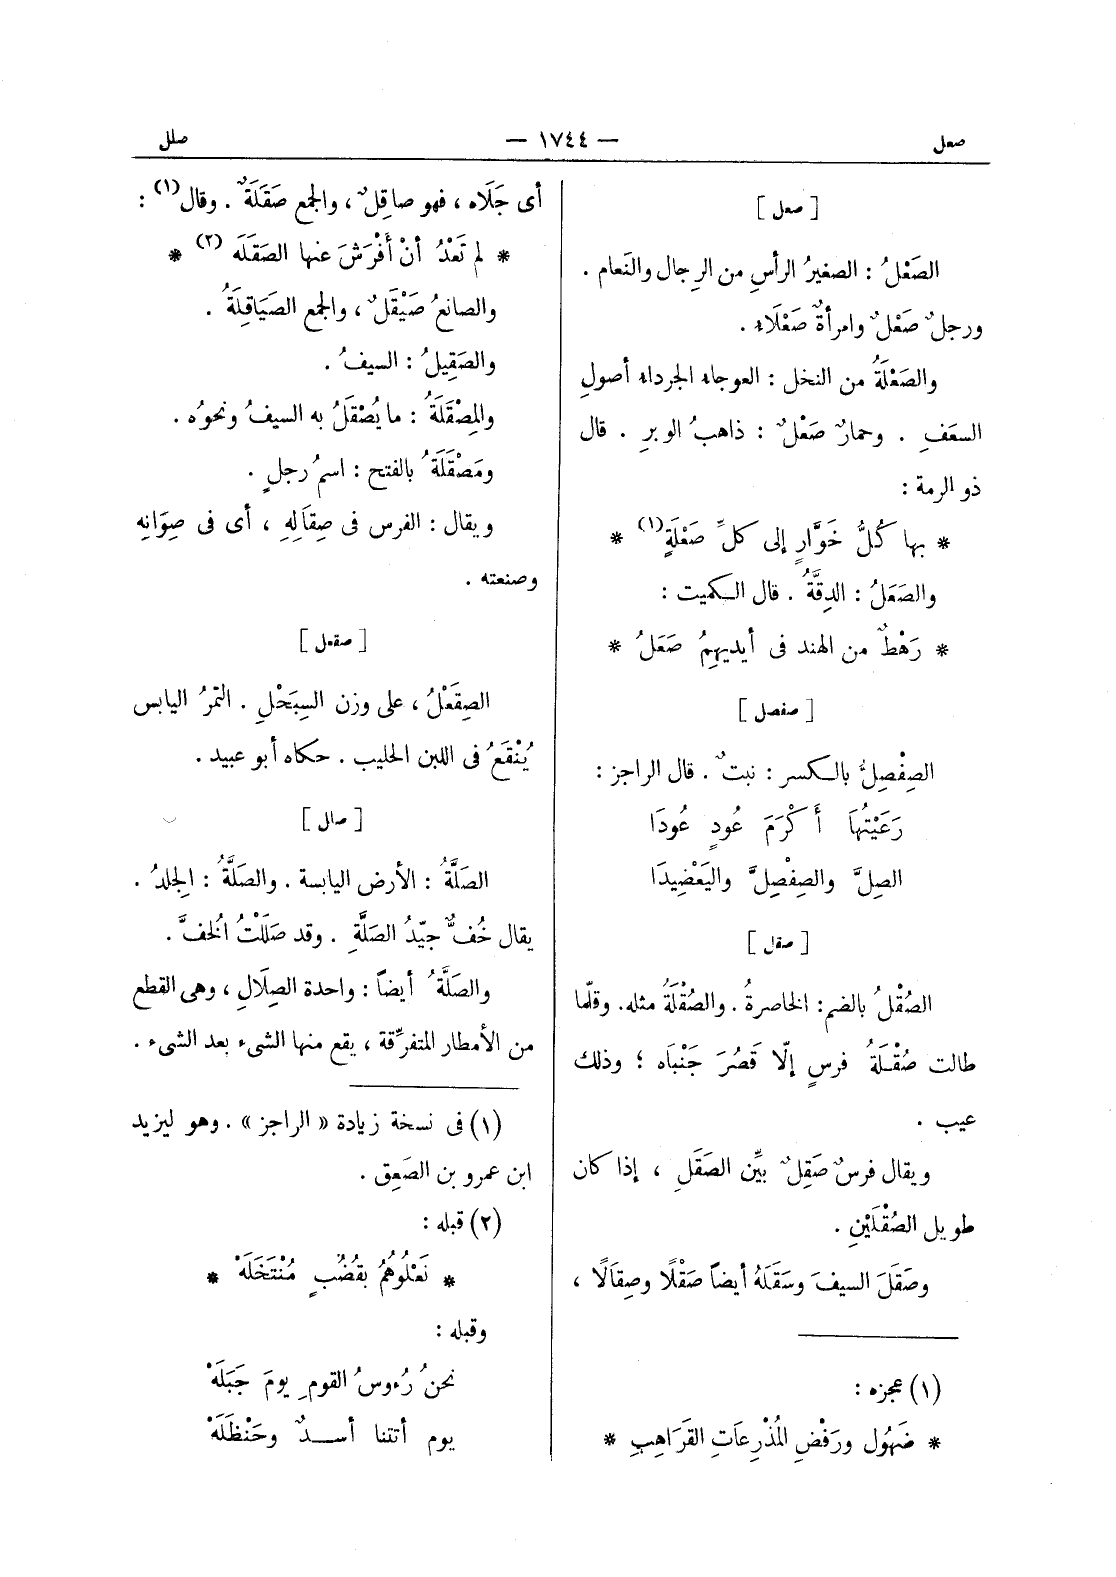 صعل — ١٧٤٤ — صلل
[ صعل ]
الصَعْلُ : الصغيرُ الرأسِ من الرجال والنَعام .
ورجلٌ صَعْلٌ وامرأةٌ صَعْلَاء .
والصَعْلَةُ من النخل : العوجاء الجرداء أصولِ
السعَفِ . وحمارٌ صَعْلٌ : ذاهبُ الوبرِ . قال
ذو الرمة :
* بها كُلُّ خَوَّارٍ إلى كلِّ صَعْلَةٍ (١) *
والصَعَلُ : الدِقَّةُ . قال الكميت :
* رَهْطٌ من الهند فى أيديهِمُ صَعَلُ *
[ صفصل ]
الصِفْصِلُّ بالكسر : نبتٌ . قال الراجز :
رَعَيْتُهَا أَكْرَمَ عُودٍ عُودَا
الصِلَّ والصِفْصِلَّ واليَعْضِيدَا
[ صقل ]
الصُقْلُ بالضم: الخاصرةُ . والصُقْلَةُ مثله. وقلّما
طالت صُقْلَةُ فرسٍ إلّا قَصُرَ جَنْبَاه ؛ وذلك
عيب .
ويقال فرسٌ صَقِلٌ بيِّن الصَقَلِ ، إذا كان
طويل الصُقْلَيْنِ .
وصَقَلَ السيفَ وسَقَلَهُ أيضاً صَقْلًا وصِقَالًا ،
(١) عجزه :
* ضَهُول ورَفْضِ المُذْرِعَاتِ القَرَاهِبِ *
أى جَلَاه ، فهو صاقِلٌ ، والجمع صَقَلَةٌ . وقال (١) :
* لم تَعْدُ أنْ أَفْرَشَ عنها الصَقَلَه (٢) *
والصانعُ صَيْقَلٌ ، والجمع الصَيَاقِلَةُ .
والصَقِيلُ : السيفُ .
والمِصْقَلَةُ : ما يُصْقَلُ به السيفُ ونحوُه .
ومَصْقَلَةُ بالفتح : اسمُ رجلٍ .
ويقال : الفرس فى صِقَالِهِ ، أى فى صِوَانِهِ
وصنعته .
[ صقعل ]
الصِقَعْلُ ، على وزن السِبَحْلِ . التمرُ اليابس
يُنْقَعُ فى اللبن الحليب . حكاه أبو عبيد .
[ صلل ]
الصَلَّةُ : الأرض اليابسة . والصَلَّةُ : الجلدُ .
يقال خُفٌّ جيّدُ الصَلَّةِ . وقد صَلَلْتُ الخفَّ .
والصَلَّةُ أيضاً : واحدة الصِلَالِ ، وهى القطع
من الأمطار المتفرِّقة ، يقع منها الشىء بعد الشىء .
(١) فى نسخة زيادة « الراجز » . وهو ليزيد
ابن عمرو بن الصَعِق .
(٢) قبله :
* نَعْلُوهُمُ بقُضُبٍ مُنْتَخَلَهْ *
وقبله :
نحنُ رُءوسُ القومِ يومَ جَبَلَهْ
يوم أتتنا أسدٌ وحَنْظَلَهْ